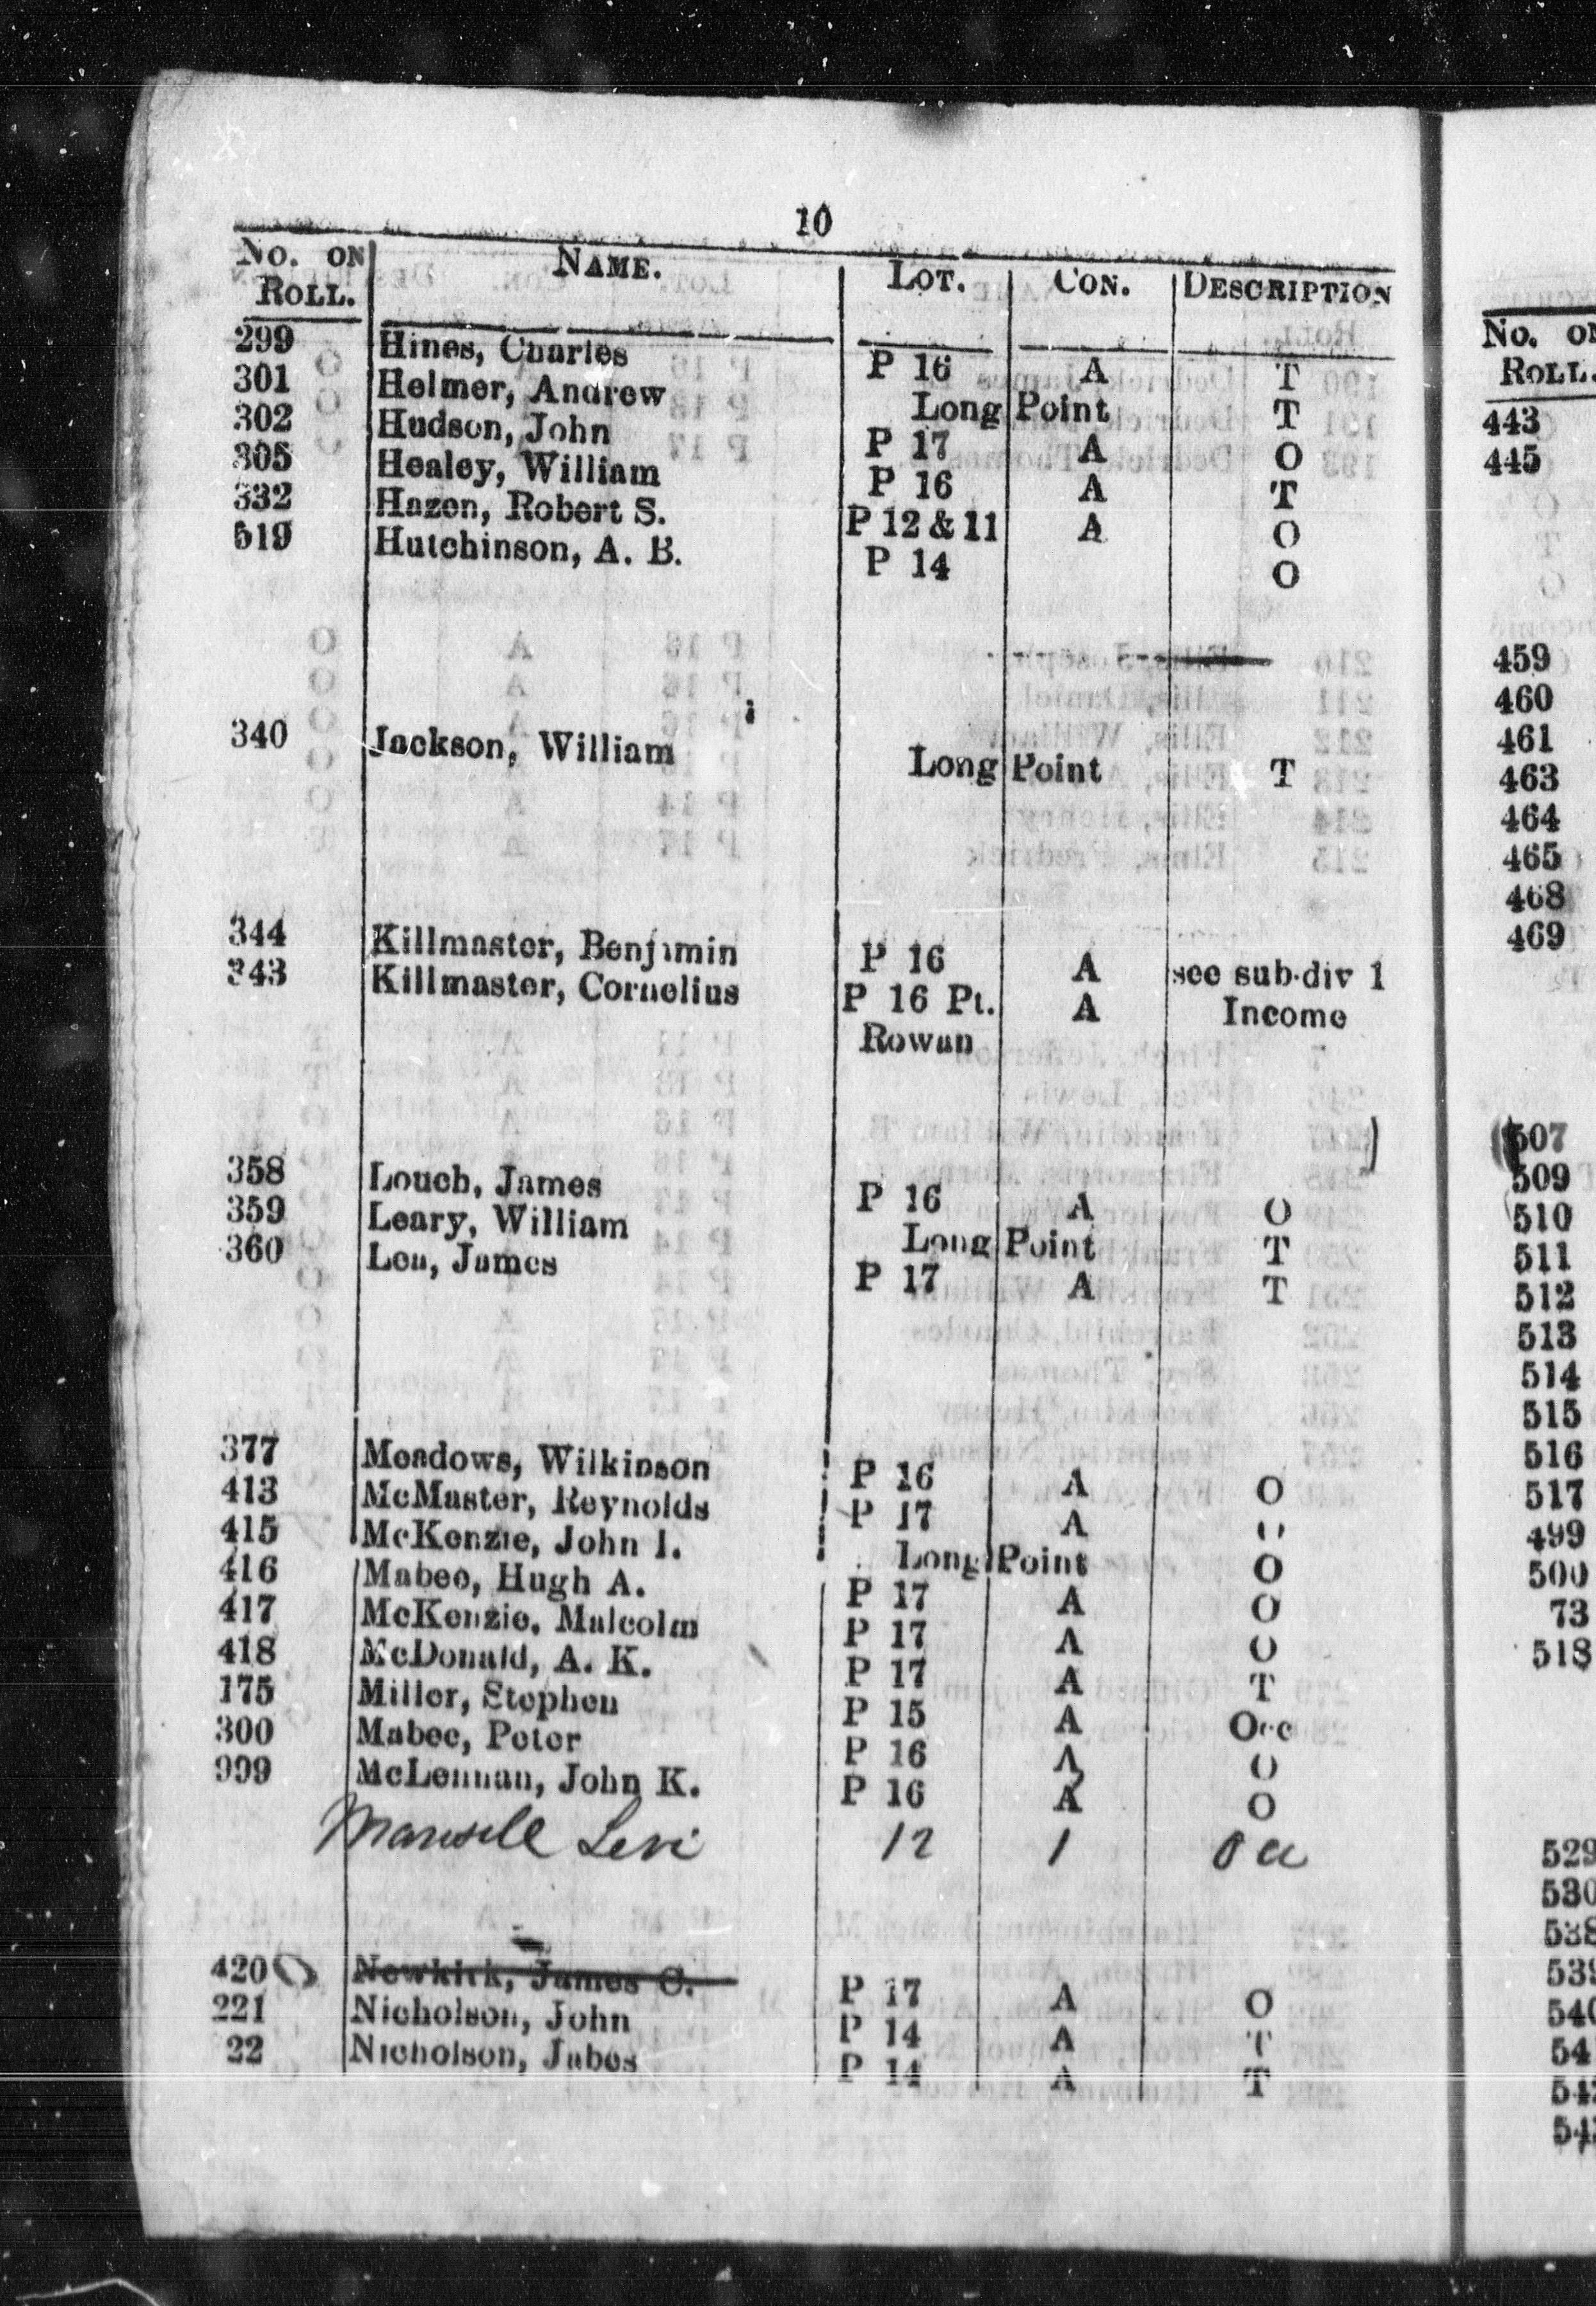 10
No. on Roll. Name. Lot. Con. Description
299 Hines, Charles P 16 A T
301 Helmer, Andrew Long Point T
302 Hudson, John P 17 A O
305 Healey, William P 16 A T
332 Hazen, Robert S. P 12 & 11 A O
519 Hutchinson, A. B. P 14 O
340 Jackson, William Long Point T
344 Killmaster, Benjamin P 16 A see sub-div 1
343 Killmaster, Cornelius P 16 Pt. A Income
Rowan
358 Louch, James P 16 A O
359 Leary, William Long Point T
360 Lea, James P 17 A T
377 Meadows, Wilkinson P 16 A O
413 McMaster, Reynolds P 17 A O
415 McKenzie, John I. Long Point O
416 Mabee, Hugh A. P 17 A O
417 McKenzie, Malcolm P 17 A O
418 McDonald, A. K. P 17 A T
175 Miller, Stephen P 15 A Occ
300 Mabee, Peter P 16 A O
999 McLennan, John K. P 16 A O
Mansell Levi 12 1 Occ
420 Newkirk, James C. P 17 A O
221 Nicholson, John P 14 A T
22 Nicholson, Jabes P 14 A T
No. on
Roll.
443
445
459
460
461
463
464
465
468
469
507
509
510
511
512
513
514
515
516
517
499
500
73
518
529
530
538